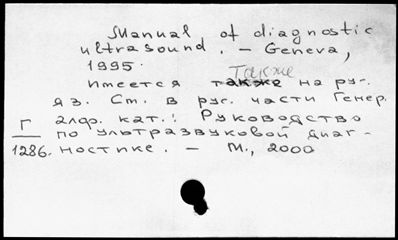 Manual of diagnostic
ultrasound. – Geneva,
1995.
Также
Имеется также на рус.
яз. См. в рус. части Генер.
алф. кат.: Руководство
Г по ультразвуковой диаг-
1286. ностике. – М., 2000